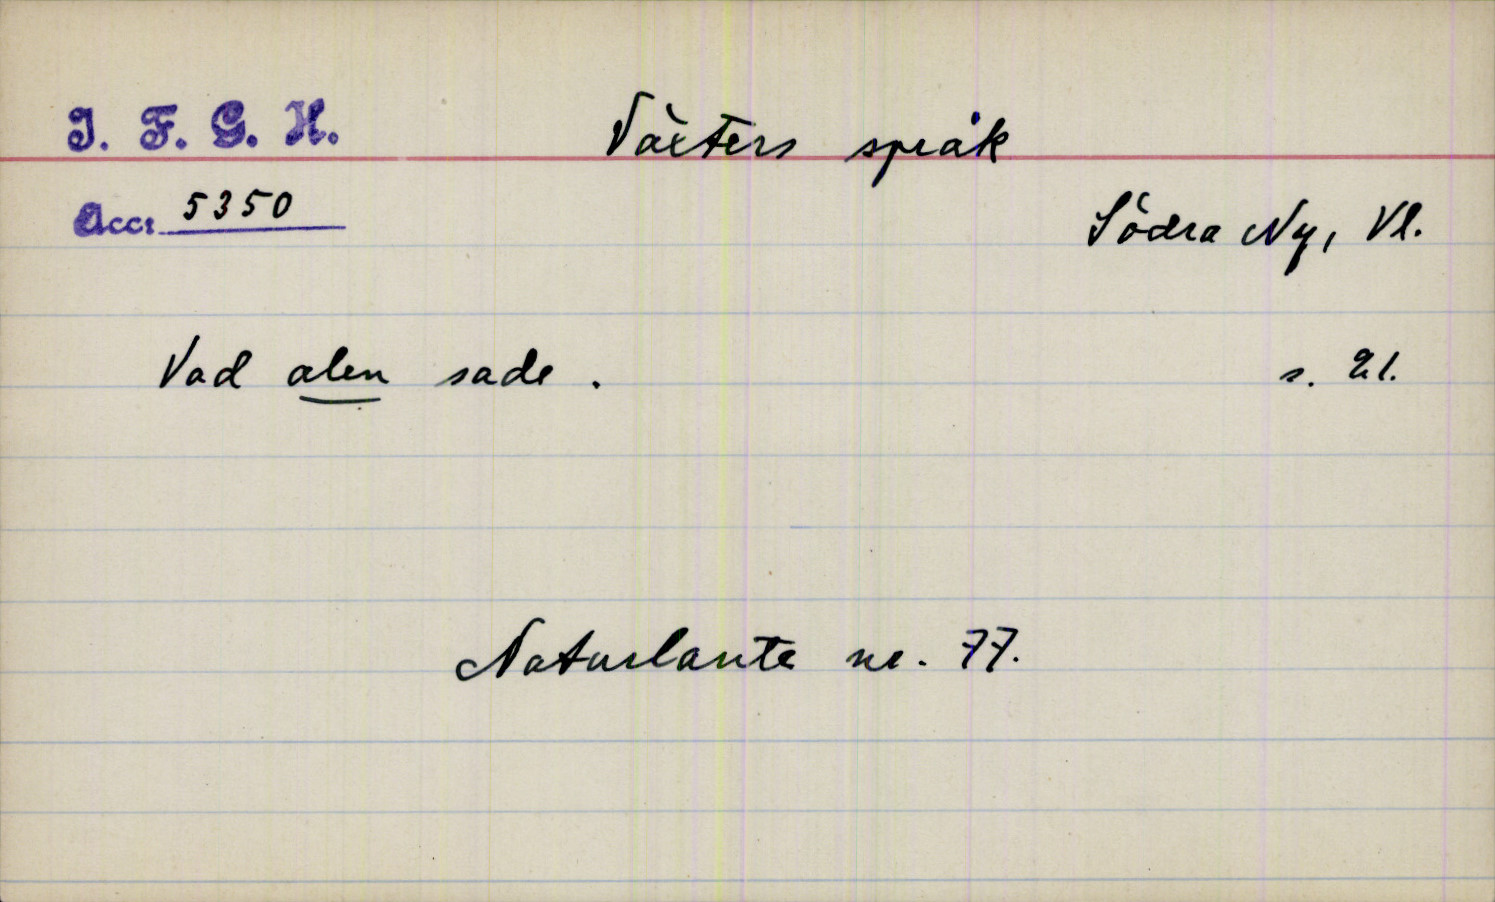 I. F. G. H.
Växters språk
Acc: 5350
Södra Ny, Vl.
Vad alen sade.
s. 21.
Naturlaute nr. 77.